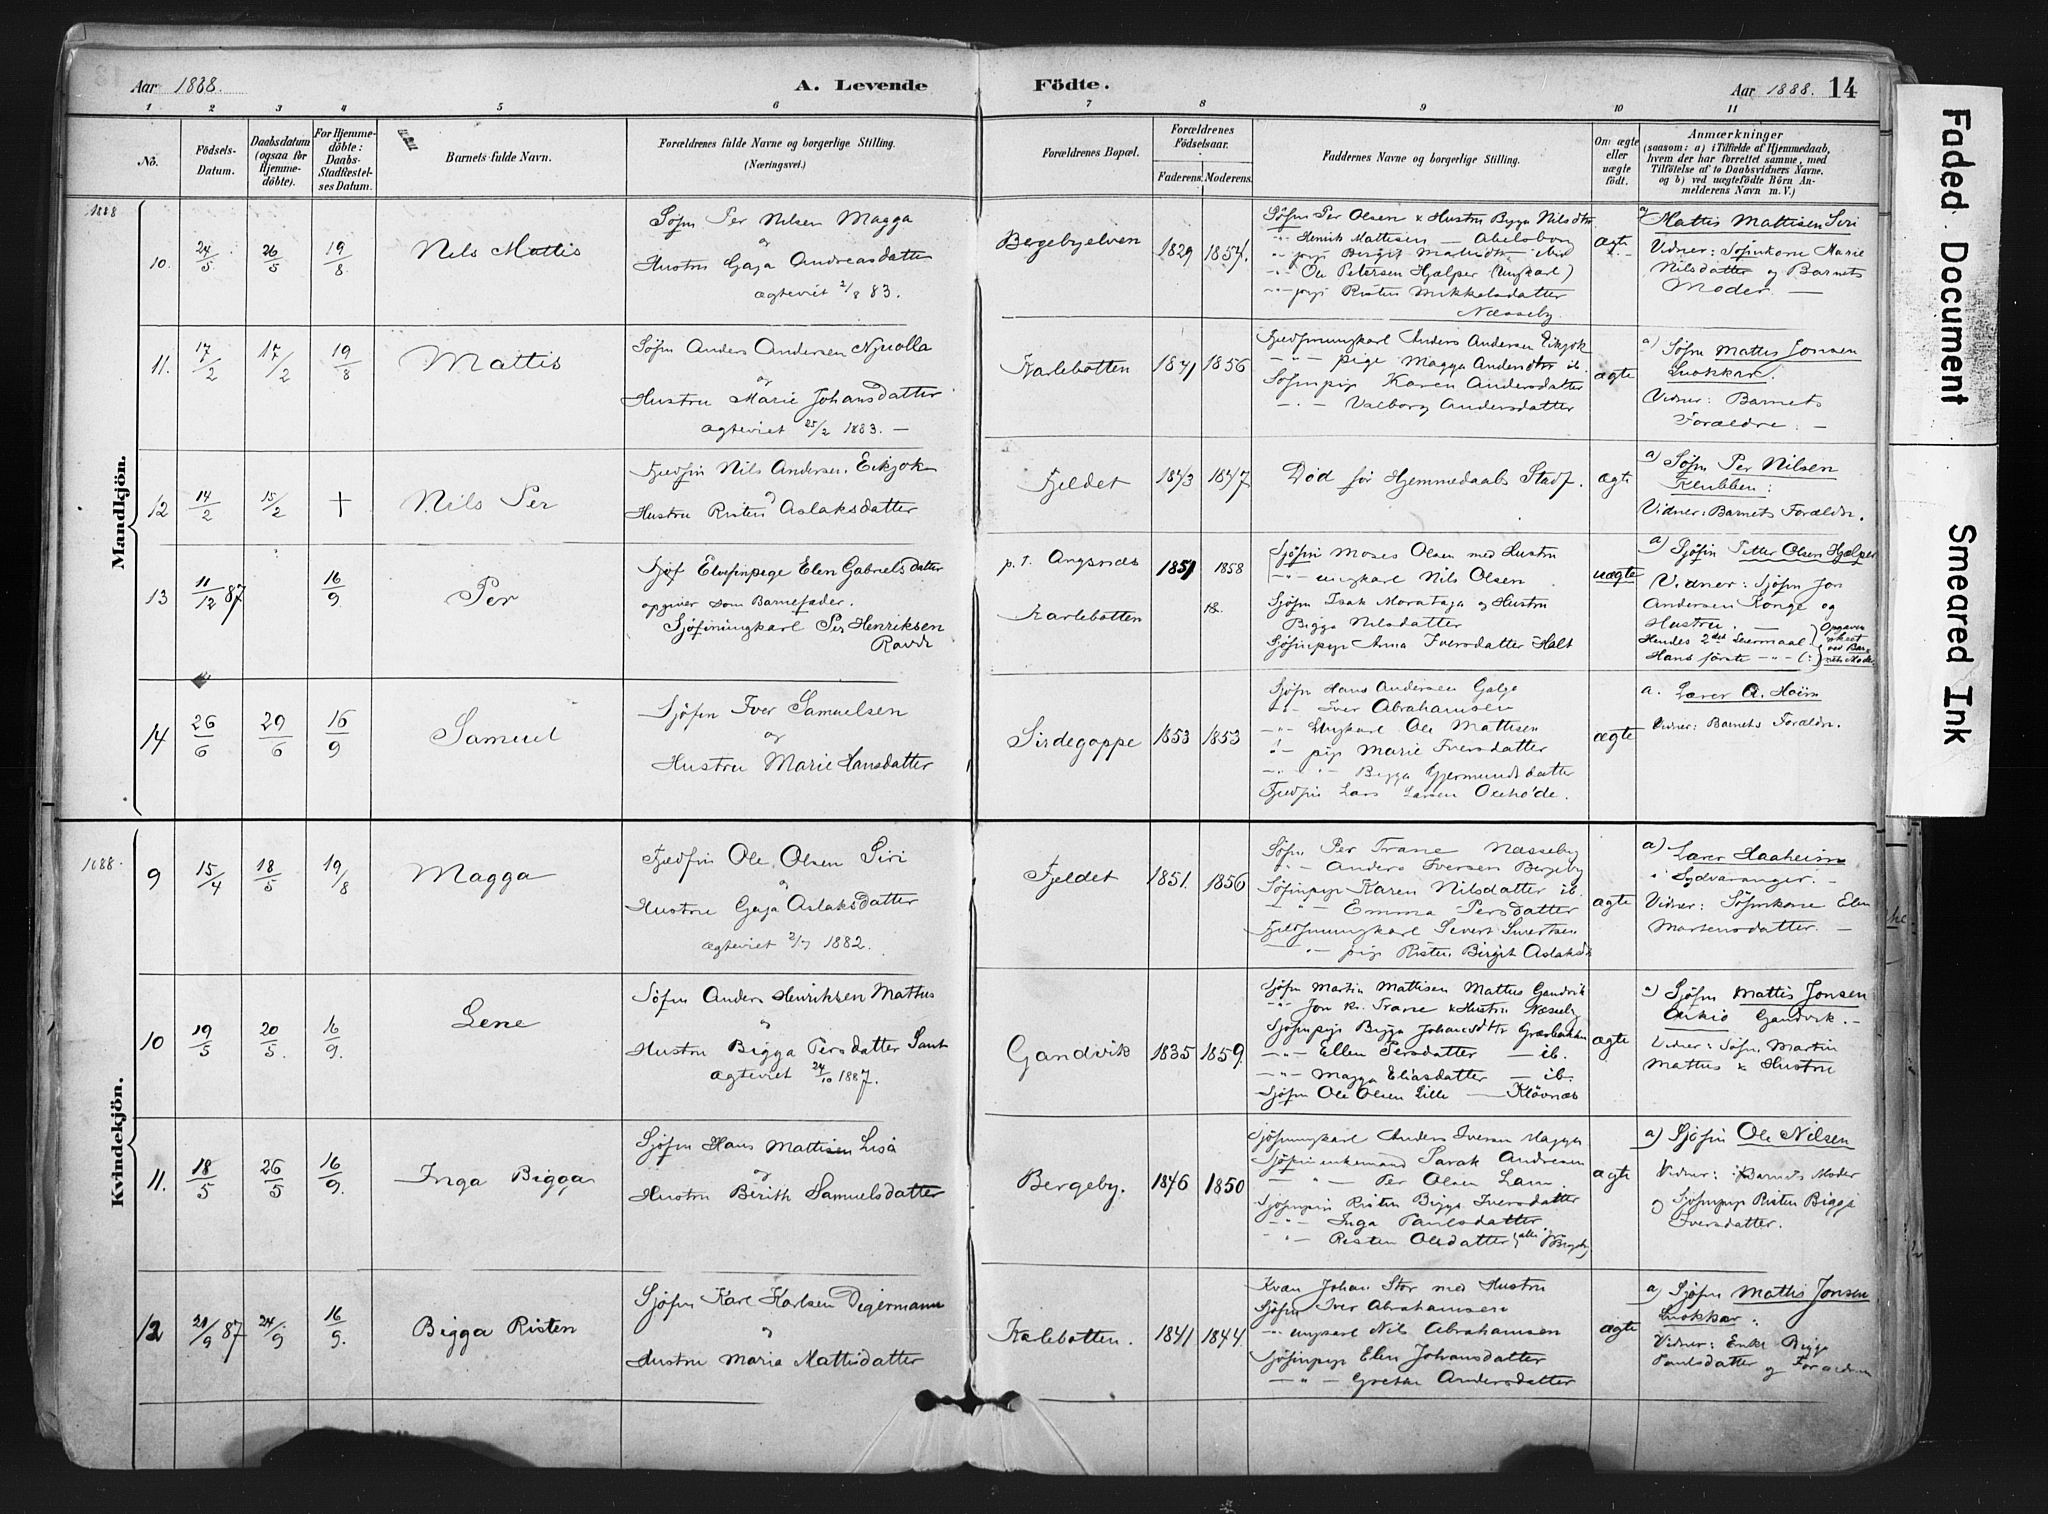 Aar 1888.
A. Levende
Födte.
Aar 1888. 14
1 2 3 4 5 6 7 8 9 10 11
No.
Födsels-Datum.
Daabsdatum (ogsaa for Hjemmedöbte).
For Hjemmedöbte: Daabs-Stadfæstelses Datum.
Barnets fulde Navn.
Forældrenes fulde Navne og borgerlige Stilling.
(Næringsvei.)
Forældrenes Bopæl.
Forældrenes Födselsaar.
Faderens. Moderens.
Faddernes Navne og borgerlige Stilling.
Om ægte eller uægte födt.
Anmærkninger
(saasom: a) i Tilfælde af Hjemmedaab, hvem der har forrettet samme, med Tilföielse af to Daabsvidners Navne. og b) ved uægtefödte Börn Anmelderens Navn m. V.)
Mandkjön.
1888
10. 24/5 26/5 19/8. Nils Mattis
Söfin Per Nilsen Magga
og
Hustru Gaja Andreasdatter
ægteviet 2/8 83.
Bergebyelven 1829 1857.
Söfin Per Olsen & Hustru Bigga Nilsdtr
Henrik Mattisen — Abelsborg
pige Birgit Mattisdtr ibid
Ole Petersen Hjælper (Ungkarl)
pige Risten Mikkelsdatter
Næsseby.
ægte
a) Mattis Mattisen Siri
Vidner: Söfinkone Marie
Nilsdatter og Barnets
Moder. —
11. 17/2 17/2 19/8 Mattis
Söfin Anders Andersen Njuolla
og
Hustru Marie Johansdatter
ægteviet 25/2 1883. —
Karlebotten 1841 1856
Fjeldfinungkarl Anders Andersen Eikjok
pige Magga Andersdtr ib.
Söfinpige Karen Andersdatter
Valborg Andersdatter
ægte
a) Söfin Mattis Jonsen
Luokkar.
Vidner: Barnets
Forældre. —
12 14/2 15/2 † Nils Per
Fjeldfin Nils Andersen Eikjok
og
Hustru Risten Aslaksdatter
Fjeldet 1843 1847
Död för Hjemmedaabs Stadf.
ægte
a) Söfin Per Nilsen
Klubben:
Vidner: Barnets Forældre.
13 11/12 87 16/9. Per
Elvefinpige Elen Gabrielsdatter
opgiver som Barnefader.
Sjöfinungkarl Per Henriksen
Ravdi
p. t. Angsnæs 1851 1858
Karlebotten 18.
Sjöfin Moses Olsen med Hustru
ungkarl Nils Olsen
Sjöfin Isak Morataja og Hustru
Bigga Nilsdatter
Sjöfinpige Anna Iversdatter Halt
uægte
a) Sjöfin Petter Olsen Hjælper
Vidner: Sjöfin Jon
Andersen Konge og
Hustru. —
Hendes 2det Leiermaal
Hans förste
Opgaven skeet ved Barnets Moder
14 26/6 29/6 16/9 Samuel
Sjöfin Iver Samuelsen
og
Hustru Marie Hansdatter
Sirdegoppe 1853 1853
Sjöfin Hans Andersen Galge
Iver Abrahamsen
Ungkarl Ole Mattisen
pige Marie Iversdatter
Bigga Gjermundsdatter
Fjeldfin Lars Larsen
ægte
a. Lærer A. Heim
Vidner: Barnets Forældre.
Kvindekjön.
1888.
9 15/4 18/5 19/8 Magga
Fjeldfin Ole Olsen Siri
og
Hustru Gaja Aslaksdatter
ægteviet 2/7 1882.
Fjeldet 1851. 1856
Söfin Per Trane Næsseby
Anders Iversen Bergeby
Söfinpige Karen Nilsdatter ib.
Emma Persdatter
Fjeldfinungkarl Sivert Sivertsen
pige Risten Birgit Aslaksdtr
ægte
a) Lærer Haaheim
i Sydvaranger. —
Vidner: Söfinkone Elen
Mortensdatter. —
10 19/5 20/5. 16/9. Lene
Söfin Anders Henriksen Mattus
og
Hustru Bigga Persdatter Sant
ægteviet 24/10 1887.
Gandvik 1835 1859.
Sjöfin Martin Mattisen Mattus Gandvik
Jon Kr. Trane & Hustru Næsseby
Sjöfinpige Bigga Johansdtr Græsbakken
Ellen Persdatter — ib.
Magga Eliasdatter — ib.
Sjöfin Ole Olsen Lille — Klövnæs
ægte
a) Sjöfin Mattis Jonsen
Aikio Gandvik. —
Vidner: Söfin Martin
Mattus & Hustru
11. 18/5 26/5 16/9. Inga Bigga
Sjöfin Hans Mattisen Lisa
og
Hustru Berith Samuelsdatter
Bergeby. 1846 1850
Sjöfinungkarl Anders Iversen Magga
Sjöfinenkemand Sarak Andersen
Per Olsen Lam.
Sjöfinpige Risten Bigga Iversdatter
Inga Paulsdatter
Risten Olsdatter (alle Bergeby)
ægte
a) Sjöfin Ole Nilsen
Vidner: Barnets Moder
og Sjöfinpige Risten Bigga
Iversdatter.
12 21/9 87 24/9 16/9. Bigga Risten
Sjöfin Karl Karlsen Digermann
og
Hustru Maria Mattisdatter
Karlebotten. 1841 1844.
Kvæn Johan Stor med Hustru
Sjöfin Iver Abrahamsen
ungkarl Nils Abrahamsen
Sjöfinpige Elen Johansdatter
Grethe Andersdatter
ægte
a) Sjöfin Mattis Jonsen
Luokkar.
Vidner: Enke Bigga
Paulsdatter og Forældrene
Faded Document
Smeared Ink